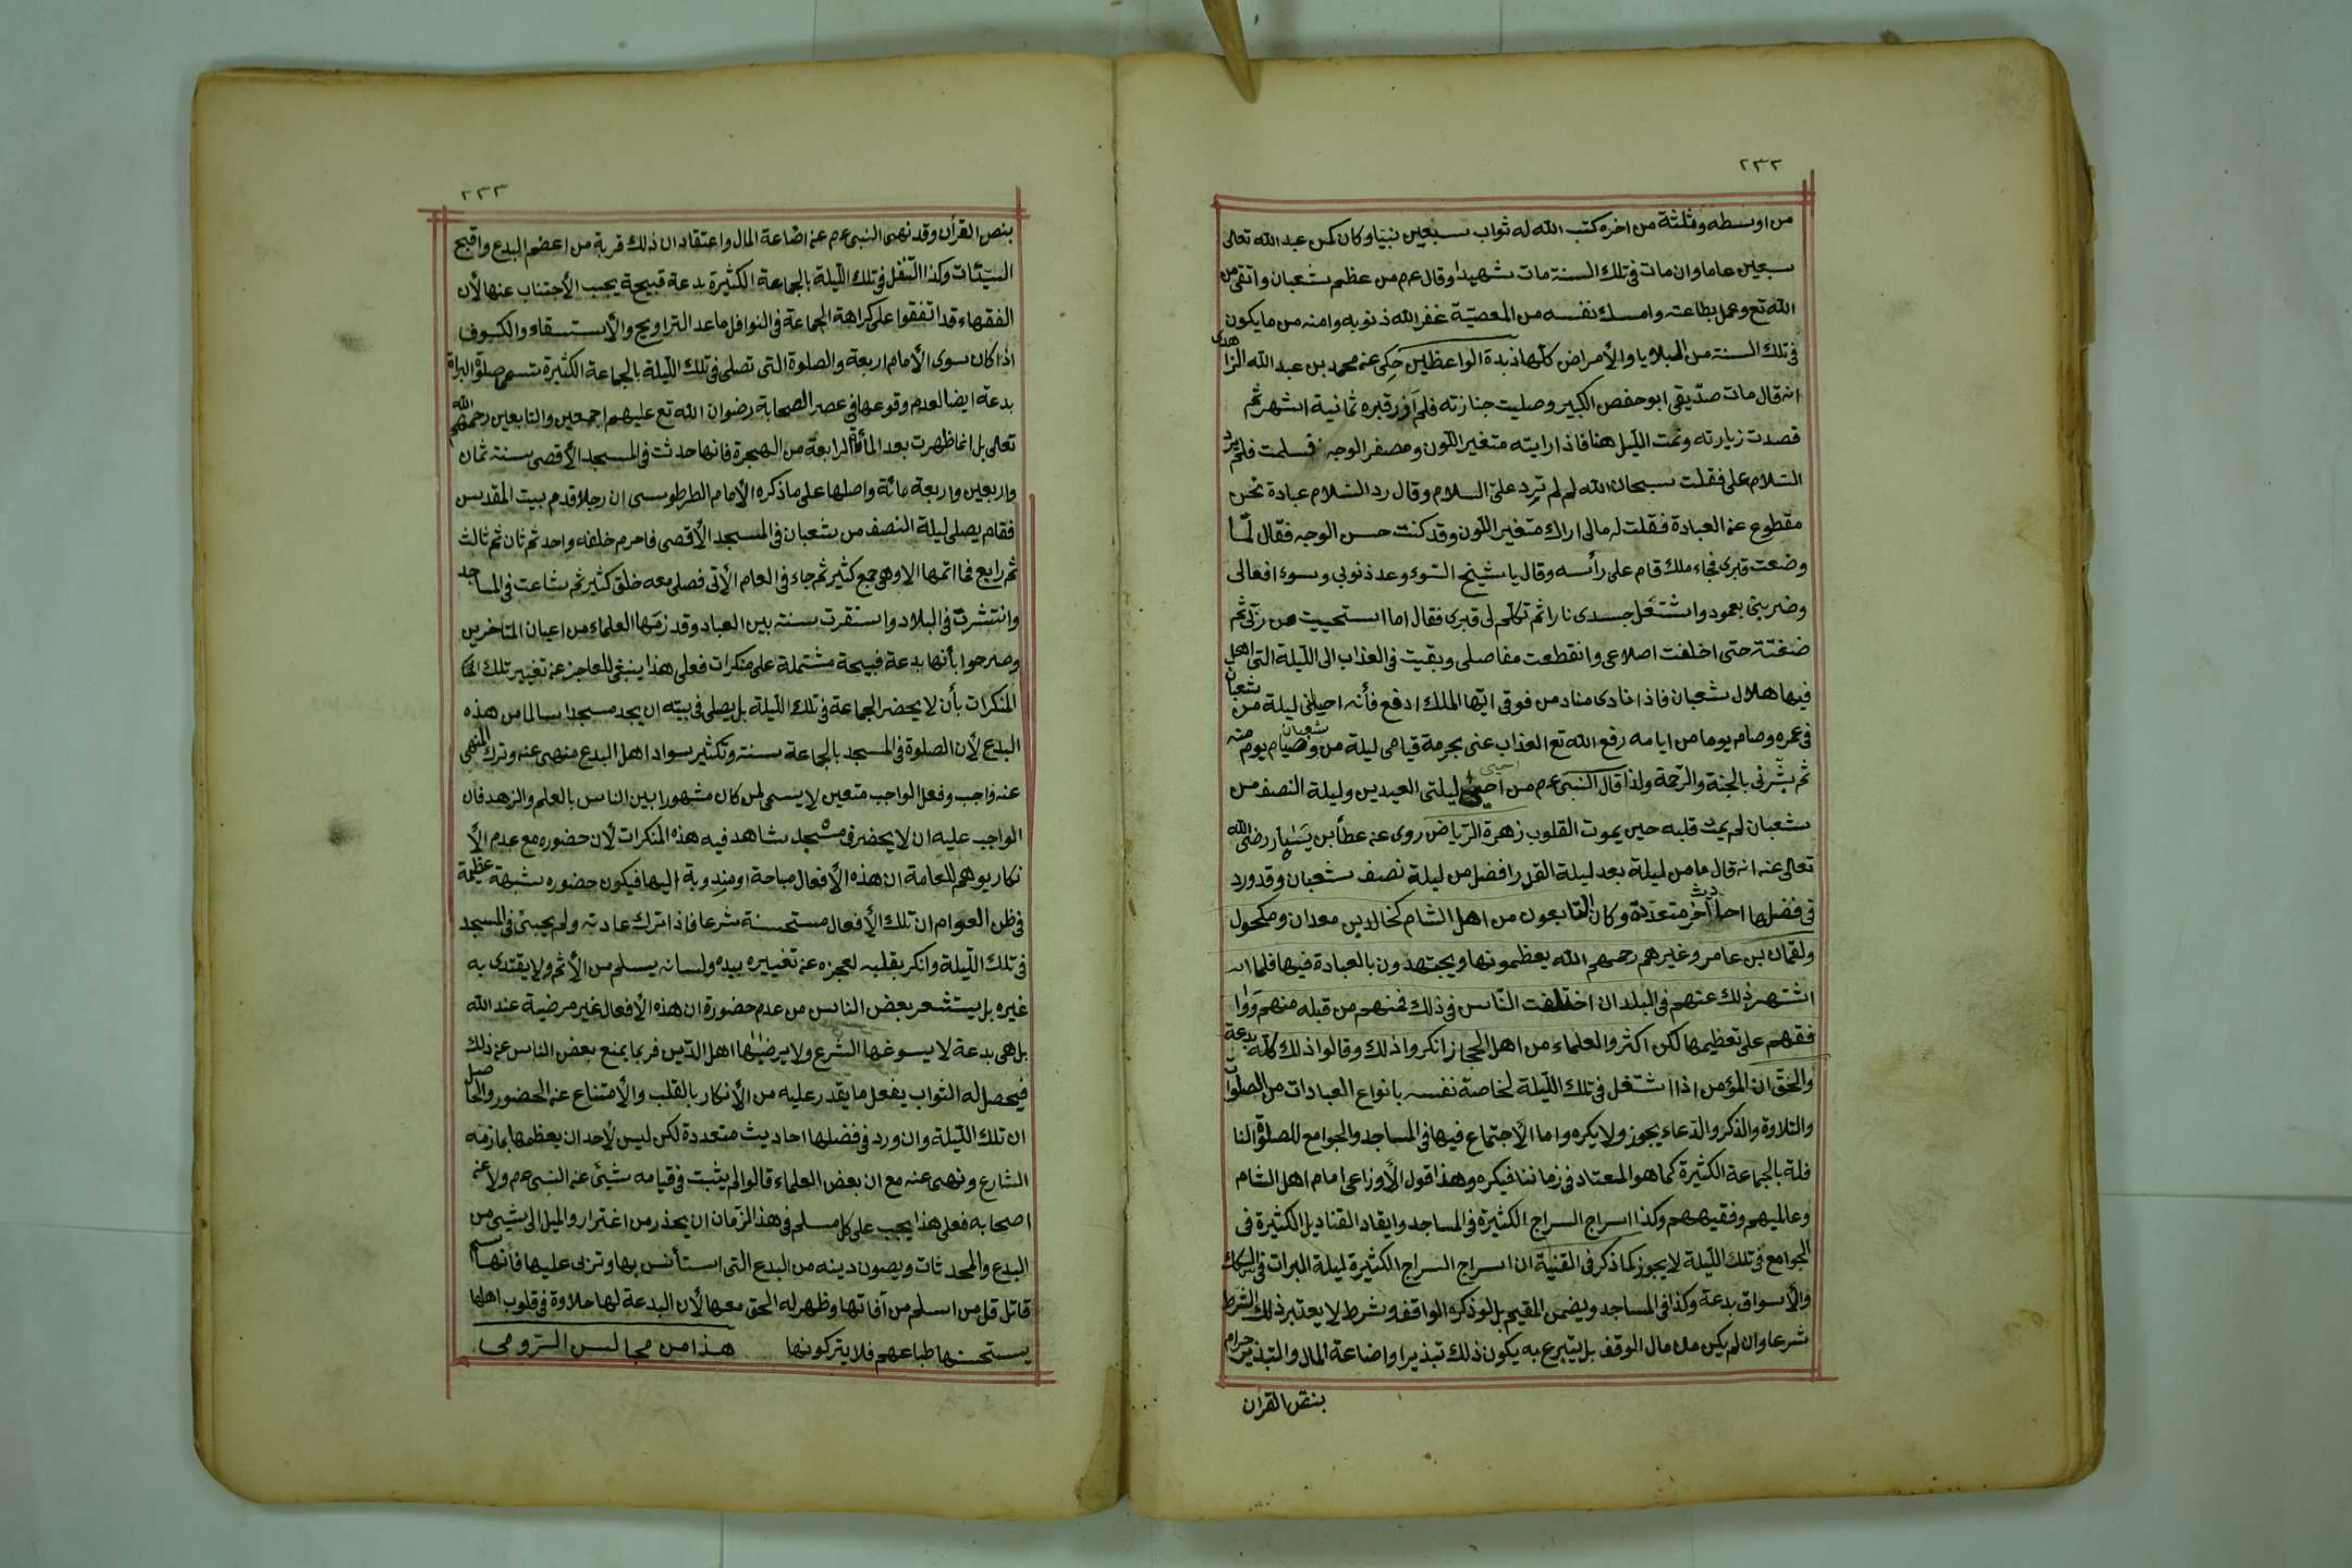 ٢٣٢
من اوسطه وثلثة من اخره كتب الله له ثواب سبعين نبيا وكان كمن عبد الله تعالى
سبعين عاما وان مات فى تلك السنة مات شهيدا وقال عم من عظم شعبان واتقى من
الله تع وعمل بطاعته وامسك نفسه من المعصية غفر الله ذنوبه وامنه من ما يكون
فى تلك السنة من البلايا والأمراض كلها زبدة الواعظين حكى عن محمد بن عبد الله الزاهدى
انه قال مات صديقى ابو حفص الكبير وصليت جنازته فلم ازر قبره ثمانية اشهر ثم
قصدت زيارته ونمت الليل هنا فاذا رايته متغير اللون ومصفر الوجه فسلمت فلم يرد
السلام على فقلت سبحان الله لم لم ترد على السلام وقال رد السلام عبادة نحن
مقطوع عن العبادة فقلت له مالى اراك متغير اللون وقد كنت حسن الوجه فقال لما
وضعت قبرى فجاء ملك قام على رأسه وقال يا شيخ السوء وعد ذنوبى وسوء افعالى
وضربنى بعمود واشتغل جسدى نارا ثم تكلم لى قبرى فقال اما استحييت من ربى ثم
ضغتة حتى اخلفت اضلاعى وانقطعت مفاصلى وبقيت فى العذاب الى الليلة التى اهل
فيها هلال شعبان فاذا نادى مناد من فوقى ايها الملك ادفع فأنه احيا ليلة من شعبان
فى عمره وصام يوما من ايامه رفع الله تع العذاب عنى بحرمة قيامى ليلة من شعبان وصيام يوم منه
ثم بشرنى بالجنة والرحمة ولذا قال النبى عم من احيى ليلتى العيدين وليلة النصف من
شعبان لم يمت قلبه حين يموت القلوب زهرة الرياض روى عن عطأ بن يسار رضى الله
تعالى عنه انه قال ما من ليلة بعد ليلة القدر افضل من ليلة نصف شعبان وقد ورد
فى فضلها احاديث اخر متعددة وكان التابعون من اهل الشام كخالد بن معدان ومكحول
ولقمان بن عامر وغيرهم رحمهم الله يعظمونها ويجتهدون بالعبادة فيها فلما ان
اشتهر ذلك عنهم فى البلدان اختلفت الناس فى ذلك فمنهم من قبله منهم ووا
فقهم على تعظيمها لكن اكثر والعلماء من اهل الحجاز انكروا ذلك وقالوا ذلك كله بدعة
والحق ان المؤمن اذا اشتغل فى تلك الليلة لخاصة نفسه بانواع العبادات من الصلوات
والتلاوة والذكر والدعاء يجوز ولا يكره واما الأجتماع فيها فى المساجد والجوامع للصلوة النا
فلة بالجماعة الكثيرة كما هو المعتاد فى زماننا فيكره وهذا قول الأوزاعى امام اهل الشام
وعالميهم وفقيههم وكذا اسراج السراج الكثيرة فى المساجد وايقاد القناديل الكثيرة فى
الجوامع فى تلك الليلة لا يجوز كما ذكر فى القنية ان اسراج السراج الكثيرة ليلة البرات فى السكك
والأسواق بدعة وكذا فى المساجد ويضمن المقيم بل لو ذكره الواقف وشرط لا يعتبر ذلك الشرط
شرعا وان لم يكن من مال الوقف بل يتبرع به يكون ذلك تبذيرا واضاعة المال والتبذير حرام
بنص القرأن
٢٣٣
بنص القرأن وقد نهى النبى عم عن اضاعة المال واعتقاد ان ذلك قربة من اعضم البدع واقبح
السيئات وكذا التنفل فى تلك الليلة بالجماعة الكثيرة بدعة قبيحة يجب الأجتناب عنها لأن
الفقهاء قد اتفقوا على كراهة الجماعة فى النوافل ما عدا التراويح والأستسقاء والكسوف
اذا كان سوى الأمام اربعة والصلوة التى تصلى فى تلك الليلة بالجماعة الكثيرة تسمى صلوة البراة
بدعة ايضا لعدم وقوعها فى عصر الصحابة رضوان الله تع عليهم اجمعين والتابعين رحمهم الله
تعالى بل انما ظهرت بعد المأة الرابعة من الهجرة فانها حدثت فى المسجد الأقصى سنة ثمان
واربعين واربعة مائة واصلها على ما ذكره الأمام الطرطوسى ان رجلا قدم بيت المقديس
فقام يصلى ليلة النصف من شعبان فى المسجد الأقصى فاحرم خلفه واحد ثم ثان ثم ثالث
ثم رابع فما اتمها الا وهى جمع كثير ثم جاء فى العام الأتى فصلى معه خلق كثير ثم شاعت فى المساجد
وانتشرت فى البلاد واستقرت سنة بين العباد وقد زمها العلماء من اعيان المتاخرين
وصرحوا بأنها بدعة قبيحة مشتملة على منكرات فعلى هذا ينبغى للعاجز عن تغيير تلك
المنكرات بأن لا يحضر الجماعة فى تلك الليلة بل يصلى فى بيته ان يجد مسجدا سالما من هذه
البدع لأن الصلوة فى المسجد بالجماعة سنة وتكثير سواد اهل البدع منهى عنه وترك المنهى
عنه واجب وفعل الواجب متعين لا يسمى لمن كان مشهورا بين الناس بالعلم والزهد فأن
الواجب عليه ان لا يحضر فى مسجد شاهد فيه هذه المنكرات لأن حضوره مع عدم الأ
نكار يوهم للعامة ان هذه الأفعال مباحة او مندوبة اليها فيكون حضوره شبهة عظيمة
فى ظن العوام ان تلك الأفعال مستحسنة شرعا فاذا ترك عادته ولم يجئ فى المسجد
فى تلك الليلة وانكر بقلبه لعجزه عن تغييره بيده ولسانه يسلم من الأثم ولا يقتدى به
غيره بل يستشعر بعض الناس من عدم حضورة ان هذه الأفعال غير مرضية عند الله
بل هى بدعة لا يسوغها الشرع ولا يرضيها اهل الدين فربما يمنع بعض الناس عن ذلك
فيحصل له الثواب يفعل ما يقدر عليه من الأنكار بالقلب والأمتناع عن الحضور والحاصل
ان تلك الليلة وان ورد فى فضلها احاديث متعددة لكن ليس لأحد ان يعظمها بما زمه
الشارع ونهى عنه مع ان بعض العلماء قالوا لم يثبت فى قيامه شيئ عن النبى عم ولا عن
اصحابه فعلى هذا يجب على كل مسلم فى هذ الزمان ان يحذر من اغترار والميل الى شيئ من
البدع والمحدثات ويصون دينه من البدع التى استأنس بها وتربى عليها فأنها سم
قاتل قل من اسلم من آفاتها وظهر له الحق معها لأن البدعة لها حلاوة فى قلوب اهلها
يستحسنها طباعهم فلا يتركونها هذا من مجالس الرومى